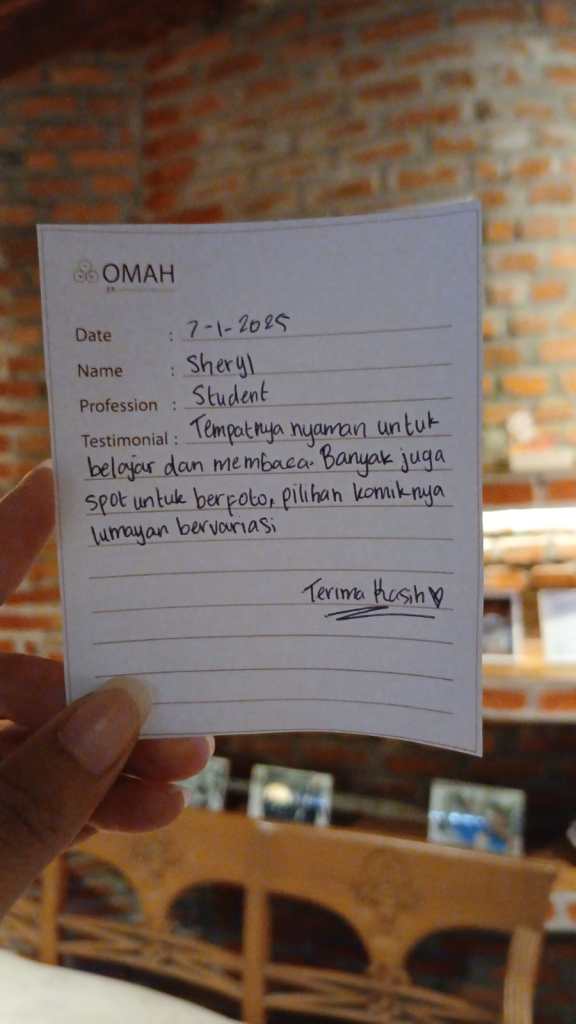 OMAH
Date : 7-1-2025
Name : Sheryl
Profession : Student
Testimonial : Tempatnya nyaman untuk
belajar dan membaca. Banyak juga
spot untuk berfoto, pilihan komiknya
lumayan bervariasi
Terima Kasih